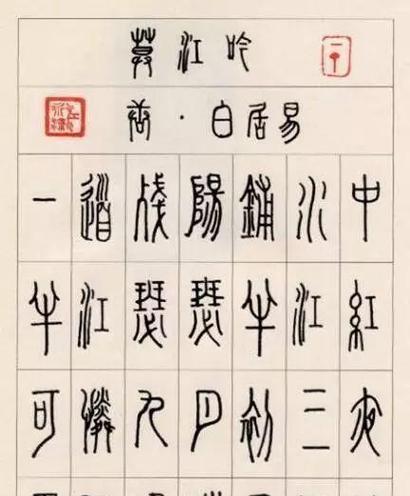 暮江吟
唐·白居易
一道殘陽鋪水中
半江瑟瑟半江紅
可憐九月初三夜